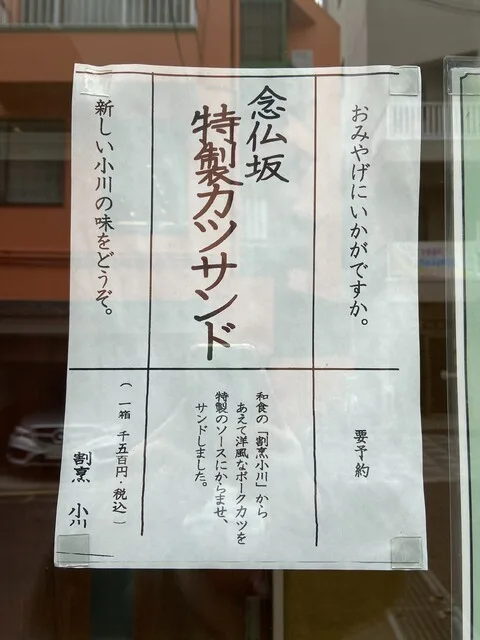 おみやげにいかがですか。
要予約
念仏坂
特製カツサンド
和食の「割烹小川」から
あえて洋風なポークカツを
特製のソースにからませ、
サンドしました。
新しい小川の味をどうぞ。
(一箱 千五百円・税込)
割烹 小川